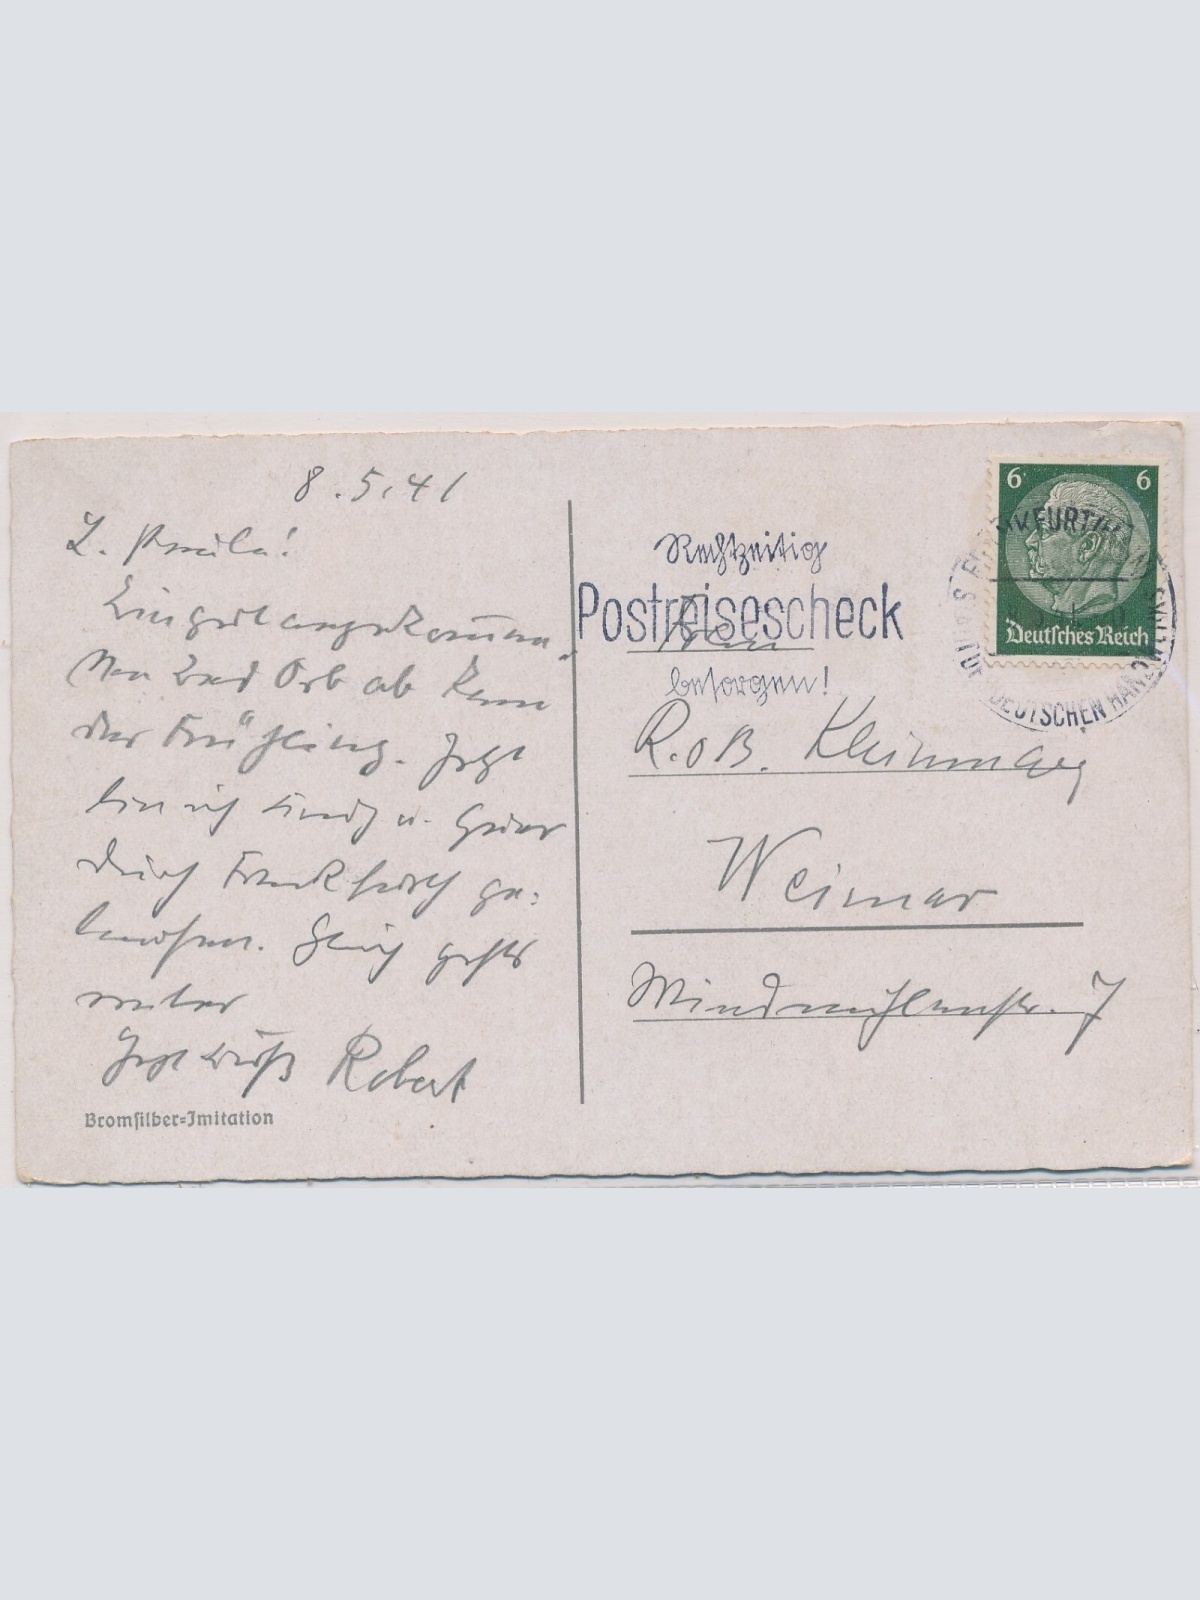 8.5.41
L. Paula!
Bin gut angekommen.
Von Bad Orb ab kam
der Frühling. Jetzt
bin ich kreuz u. quer
durch Frankfurt ge-
laufen. Gleich gehts
weiter
Robert
Bromsilber-Imitation
Rechtzeitig
Postreisescheck
besorgen!
Frau
R. Kleinmag
Weimar
Windmühlenstr. 7
6 6
Deutsches Reich
FRANKFURT
DEUTSCHEN HAND